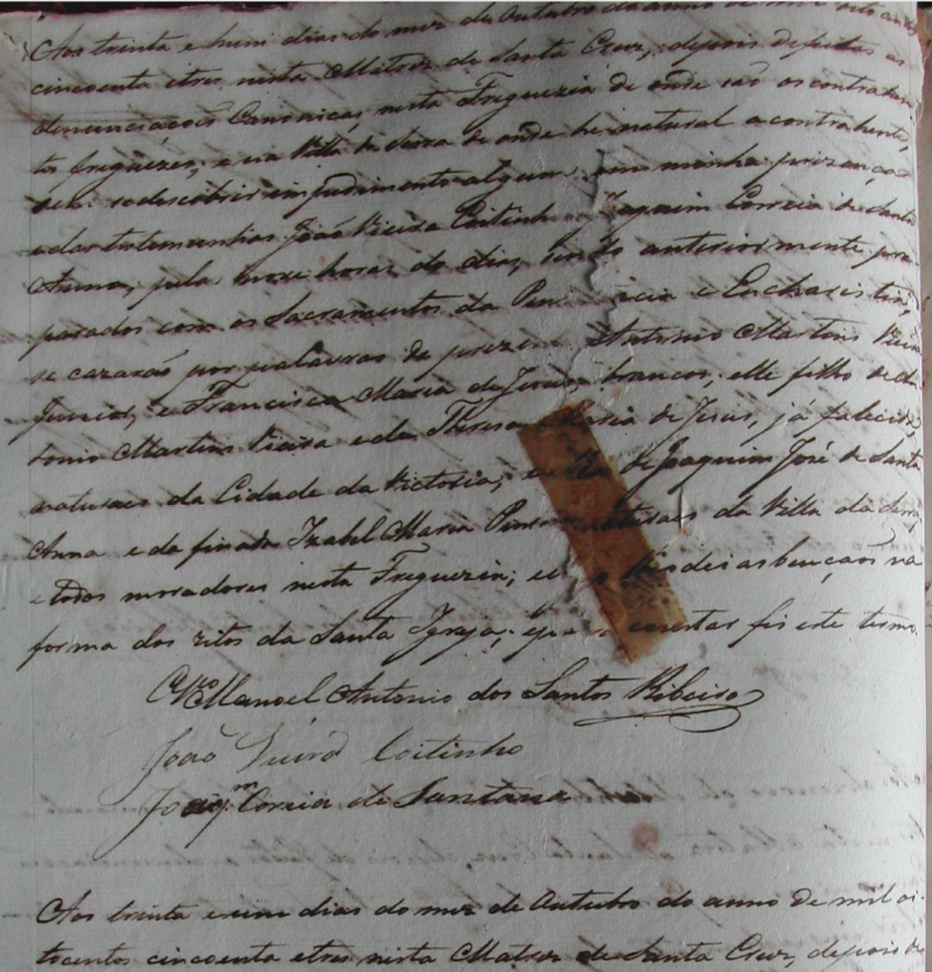 Aos trinta e hum dias do mez de Outubro do anno de mil oito
cincoenta e tres, nesta Matriz de Santa Cruz, depois de feitas as
denunciaçoes Canonicas nesta Freguezia de onde são os contrahen
tes freguezes, e na Villa da Serra de onde he natural a contrahente,
se descobrir impedimento algum, em minha prezença
e das testemunhas João Vieira Coitinho Joaquim Correia de Santa
Anna, pelas nove horas do dia, tendo anteriormente pre
parados com os Sacramentos da Pen cia e Eucharistia,
se cazarão por palavras de preze Antonio Martins Vieira
Junior, e Francisca Maria de Jesus brancos, elle filho de An
tonio Martins Vieira e de Theresa Maria de Jesus, já falecida,
naturaes da Cidade da Victoria; e de Joaquim José de Santa
Anna e da finada Izabel Maria naturaes da Villa da Serra,
e todos moradores nesta Freguezia; e as bençaõs na
forma dos ritos da Santa Igreja; e constar fis este termo.
Manoel Antonio dos Santos Ribeiro
João Vieira Coitinho
Joaqm. Correia de Santana
Aos trinta e um dias do mez de Outubro do anno de mil oi-
tocentos cincoenta e tres nesta Matriz de Santa Cruz, depois de